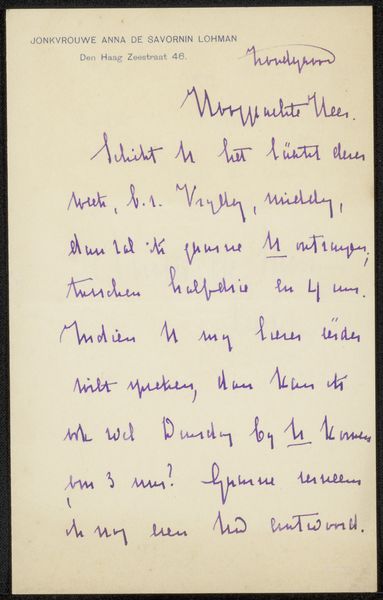 JONKVROUWE ANNA DE SAVORNIN LOHMAN
Den Haag Zeestraat 46.
Hooggeachte Heer.
Schikt U het laatst dezer
week, b.v. Vrijdag, middag,
dan zal ik gaarne U ontvangen,
tusschen halfdrie en 4 uur.
Indien U mij liever eerder
wilt spreken, dan kan ik
ook wel Dinsdag bij U komen
om 3 uur? Gaarne verneem
ik nog even Uw antwoord.